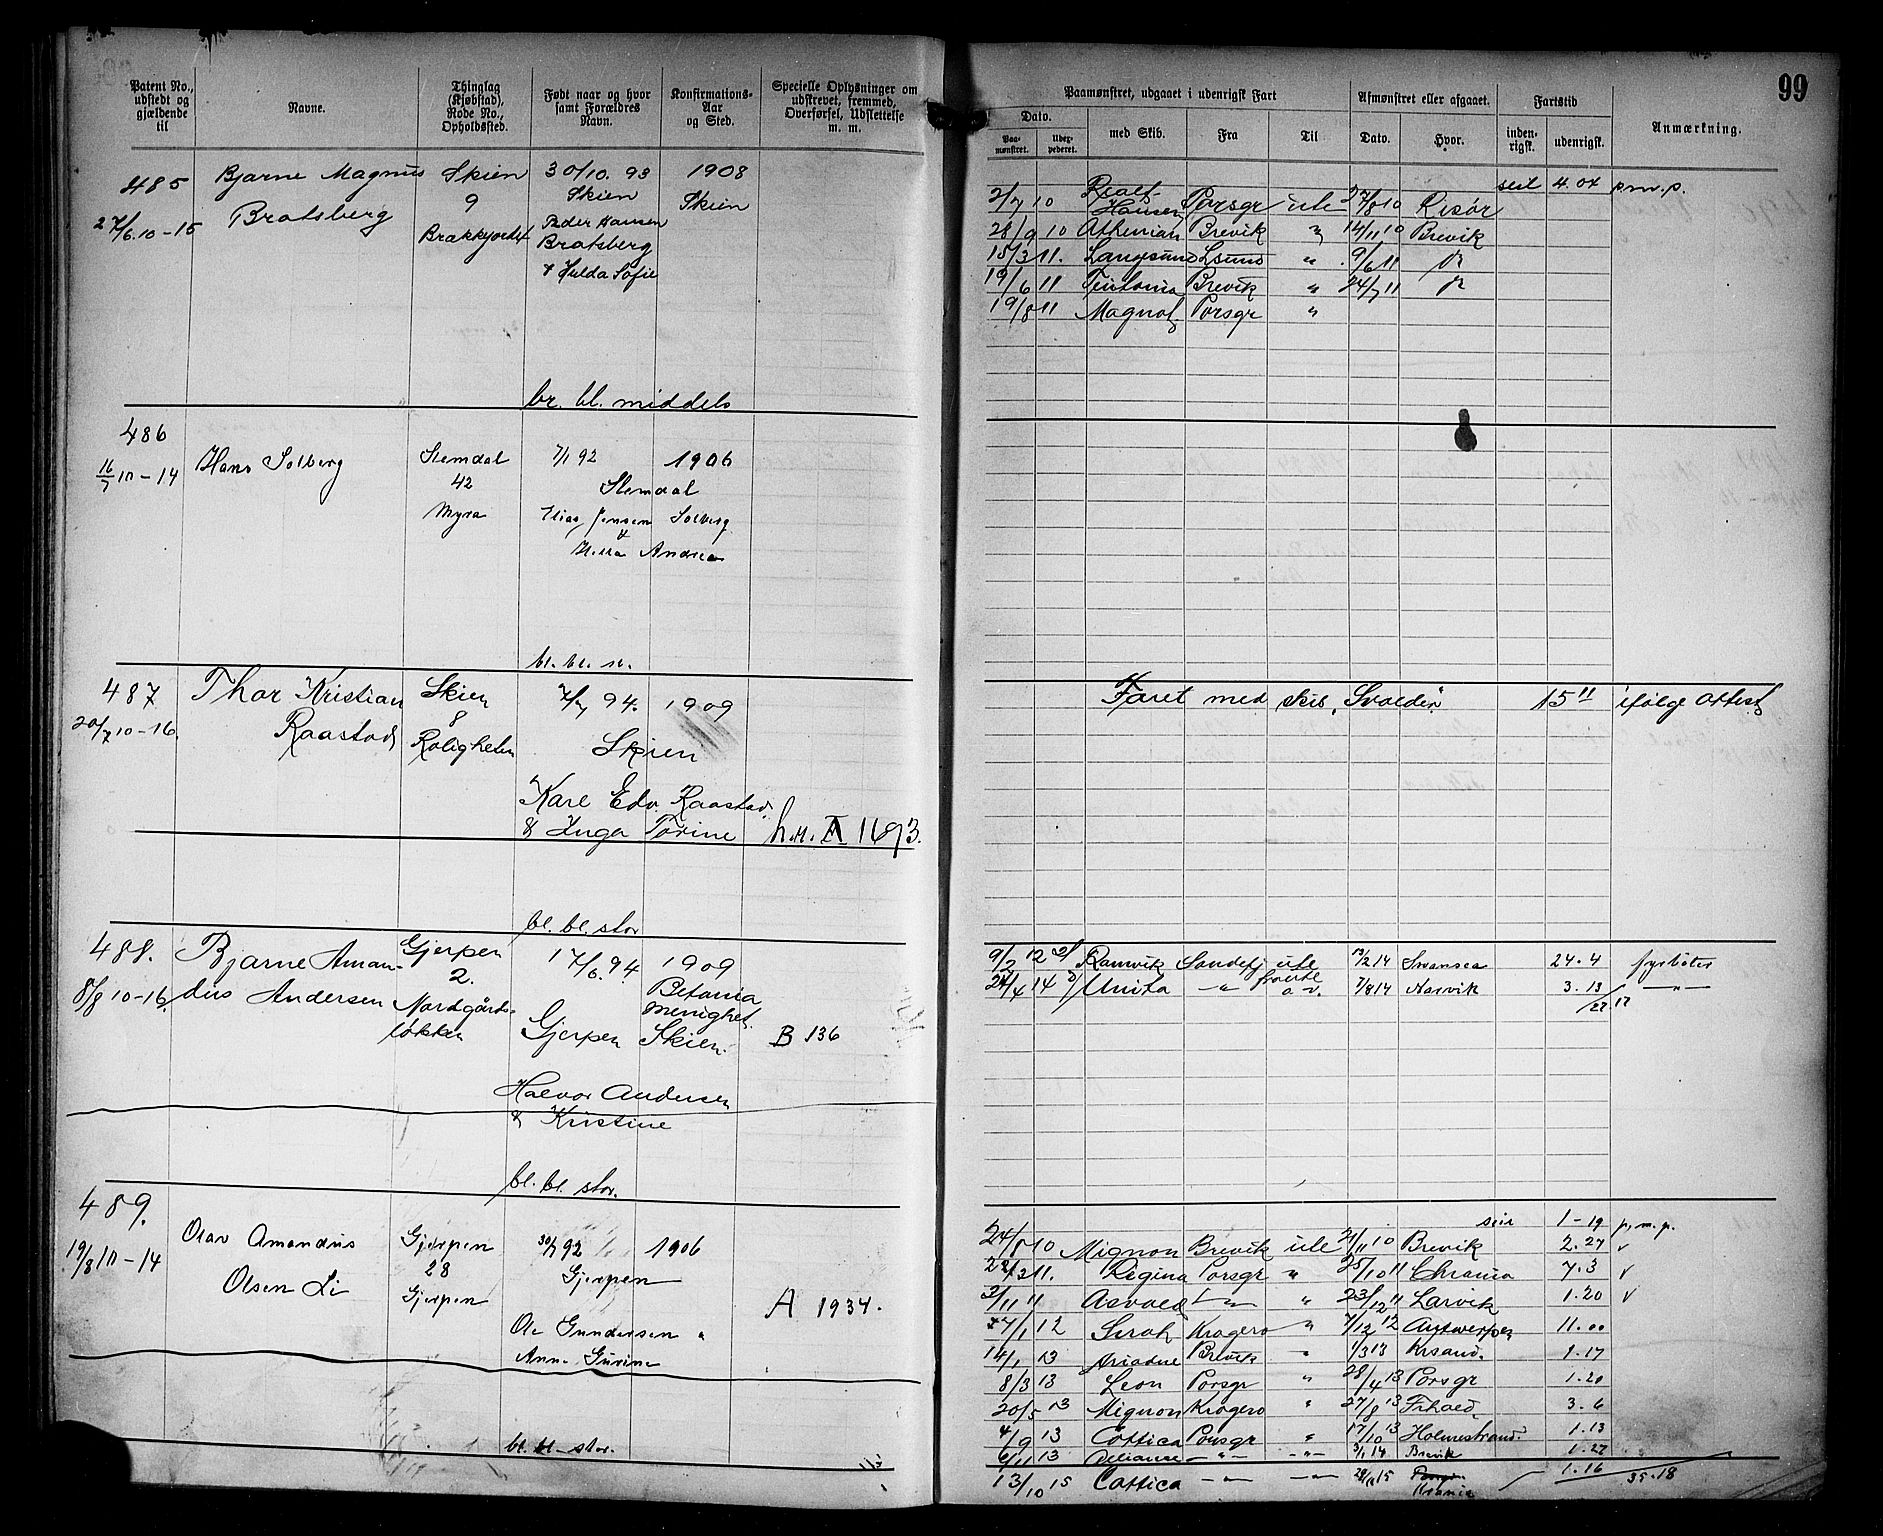 Patent No., udstedt og gjældende til
Navne.
Thinglag (Kjøbstad), Rode No., Opholdssted.
Født naar og hvor samt Forældres Navn.
Konfirmations-Aar og Sted.
Specielle Oplysninger om udskrevet, fremmed, Overførsel, Udslettelse m. m.
485
27/6.10-15
Bjarne Magnus
Bratsberg
Skien
9
30/10.93
Skien
Peder Hansen
Bratsberg
& Hulda Sofie
1908
Skien
br. bl. middels
486
16/7 10-14
Hans Solberg
Slemdal
42
Myra
7/1 92
1906
Slemdal
Elias Jensen Solberg
&
Andrea
487
20/7 10-16.
Thor Kristian
Raastad
Skien
8
Roligheten
94.
1909
Skien
Karl Edv. Raastad
& Inga Torine
1693.
bl. bl. stor
488.
8/8 10-16.
Bjarne Aman-
dus Andersen
Gjerpen
2.
Nordgårds-
løkken
17/6.94
Gjerpen
1909
Betania
menighet
Skien.
B 136
Halvor Andersen
& Kristine
bl. bl. stor.
489.
19/8 10-14
Olav Amandus
Olsen Li
Gjerpen
28
Gjerpen
92
Gjerpen
1906
A 1934.
Ole Gundersen
Anne Gurine
bl. bl. stor.
99
Paamønstret, udgaaet i udenrigsk Fart
Afmønstret eller afgaaet.
Fartstid
Anmærkning.
Dato.
Paa-mønstret.
Udex-pederet.
med Skib.
Fra
Til
Dato.
Hvor.
inden-rigsk.
udenrigsk.
seil 4.04 p.m.p.
2/7 10 Hansen Porsgr ute 27/8 10 Risør
28/9 10 Athenian Brevik " 14/11 10 Brevik
15/3 11. Langesund Lsund " 9/6 11
19/6 11 Teutonia Brevik " 24/7 11
19/8 11 Magnol. Porsgr "
Faret med skib "Svolder" 15 11 ifølge Attest
9/2 12 Ramvik Sandefj ute 12/2 14 Swansea 24.4 fyrbøter
27/4 14 Unita -"- 7/8 14 Narvik 3.13 -"-
seil 1-19 p.m.p.
24/8 10 Mignon Brevik ute 21/11 10 Brevik 2.27 v
11. Regina Porsgr " 25/10 11 Chrania 7.3 v
2/11 11 Asvald -"- " 23/12 11 Larvik 1.20 v
1 12 Sirah Kragerø " 7/12 12 Antwerpen 11.00
14/1 13 Ariadne Brevik " 1/3 13 Krsand. 1.17
8/3 13 Leon Porsgr " 28/4 13 Porsgr 1.20
20/5 13 Mignon Kragerø " 27/8 13 Frhald. 3.6
4/9 13 Cottica Porsgr " 17/10 13 Holmestrand. 1.13
6/11 13 Alliance -"- -"- 3/1 14 Brevik 1.27
13/10 15 Cottica -"- -"- 1.16 35.18